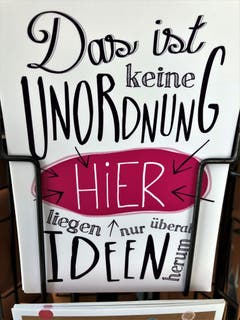 Das ist
keine
UNORDNUNG
HiER
liegen nur überall
IDEEN herum